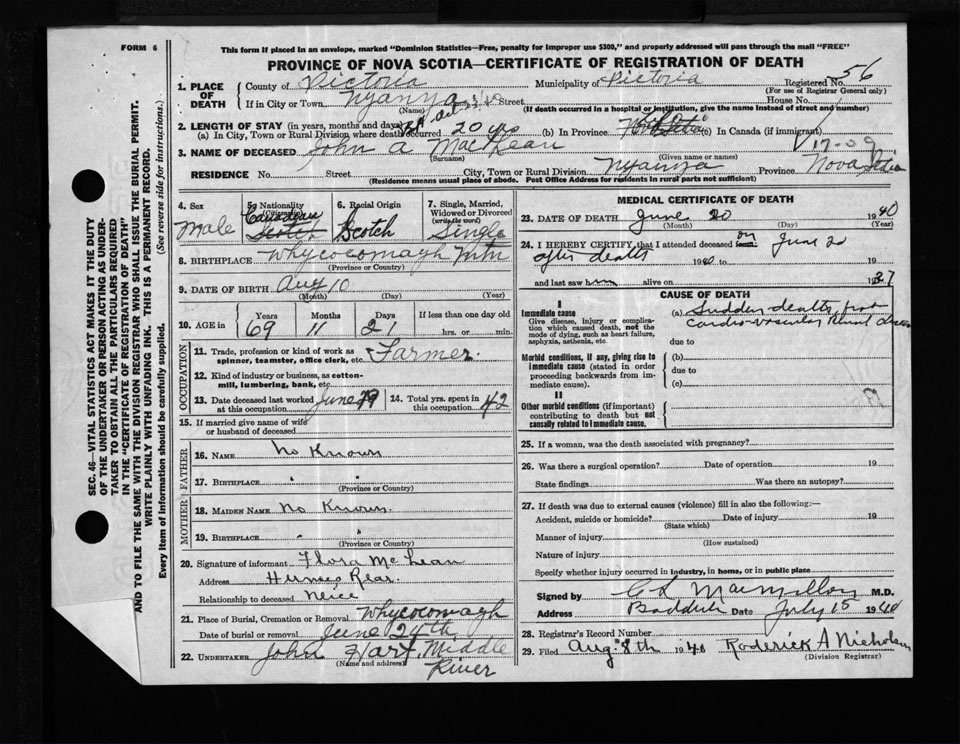 FORM 6
This form if placed in an envelope, marked "Dominion Statistics—Free, penalty for improper use $300," and properly addressed will pass through the mail "FREE"
PROVINCE OF NOVA SCOTIA—CERTIFICATE OF REGISTRATION OF DEATH
1. PLACE OF DEATH
County of Victoria Municipality of Victoria Registered No. 56
(For use of Registrar General only)
If in City or Town Nyanza Street House No.
(Name) (If death occurred in a hospital or institution, give the name instead of street and number)
2. LENGTH OF STAY (in years, months and days)
(a) In City, Town or Rural Division where death occurred 20 yrs (b) In Province (c) In Canada (if immigrant)
17-09
3. NAME OF DECEASED John A MacKean
(Surname) (Given name or names)
RESIDENCE No. Street City, Town or Rural Division Nyanza Province Nova Scotia
(Residence means usual place of abode. Post Office Address for residents in rural parts not sufficient)
4. Sex Male
5. Nationality (Citizenship) Canadian Scotch
6. Racial Origin Scotch
7. Single, Married, Widowed or Divorced (write the word) Single
8. BIRTHPLACE Whycocomagh
(Province or Country)
9. DATE OF BIRTH Aug 10
(Month) (Day) (Year)
10. AGE in Years Months Days If less than one day old
69 11 21 hrs. or min.
OCCUPATION
11. Trade, profession or kind of work as spinner, teamster, office clerk, etc. Farmer.
12. Kind of industry or business, as cotton-mill, lumbering, bank, etc.
13. Date deceased last worked at this occupation June 39
14. Total yrs. spent in this occupation 42
15. If married give name of wife or husband of deceased
FATHER
16. NAME no Known
17. BIRTHPLACE " "
(Province or Country)
MOTHER
18. MAIDEN NAME no Known.
19. BIRTHPLACE " "
(Province or Country)
20. Signature of informant Flora McLean
Address Hunes Rear.
Relationship to deceased neice
21. Place of Burial, Cremation or Removal Whycocomagh
Date of burial or removal June 24th
22. UNDERTAKER John Hart Middle River
(Name and address)
MEDICAL CERTIFICATE OF DEATH
23. DATE OF DEATH June 20 1940
(Month) (Day) (Year)
24. I HEREBY CERTIFY that I attended deceased from on June 20
after death 1940 to 19
and last saw him alive on 1937
CAUSE OF DEATH
I
Immediate cause
Give disease, injury or complication which caused death, not the mode of dying, such as heart failure, asphyxia, asthenia, etc.
(a) Sudden death, from
Cardio-vascular Renal disease
due to
Morbid conditions, if any, giving rise to immediate cause (stated in order proceeding backwards from immediate cause).
(b)
due to
(c)
II
Other morbid conditions (if important) contributing to death but not causally related to immediate cause.
25. If a woman, was the death associated with pregnancy?
26. Was there a surgical operation? Date of operation 19
State findings Was there an autopsy?
27. If death was due to external causes (violence) fill in also the following:—
Accident, suicide or homicide? Date of injury 19
(State which)
Manner of injury
(How sustained)
Nature of injury
Specify whether injury occurred in industry, in home, or in public place
Signed by C L MacMillan M.D.
Address Baddeck Date July 15 1940
28. Registrar's Record Number
29. Filed Aug. 8th 1940 Roderick A Nicholson
(Division Registrar)
SEC. 46—VITAL STATISTICS ACT MAKES IT THE DUTY
OF THE UNDERTAKER OR PERSON ACTING AS UNDER-
TAKER TO OBTAIN ALL THE PARTICULARS REQUIRED
IN THE "CERTIFICATE OF REGISTRATION OF DEATH"
AND TO FILE THE SAME WITH THE DIVISION REGISTRAR WHO SHALL ISSUE THE BURIAL PERMIT.
WRITE PLAINLY WITH UNFADING INK. THIS IS A PERMANENT RECORD.
Every item of Information should be carefully supplied. (See reverse side for instructions.)